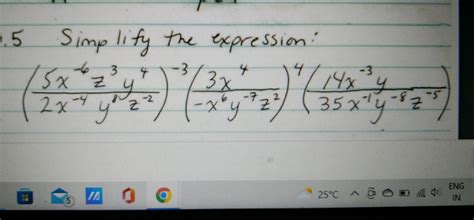 .5 Simplify the expression:
(5x^-6 z^3 y^4 / 2x^-4 y^8 z^-2)^-3 (3x^4 / -x^6 y^-7 z^2)^4 (14x^-3 y / 35x^-1 y^-8 z^-5)
5
25°C
ENG
IN